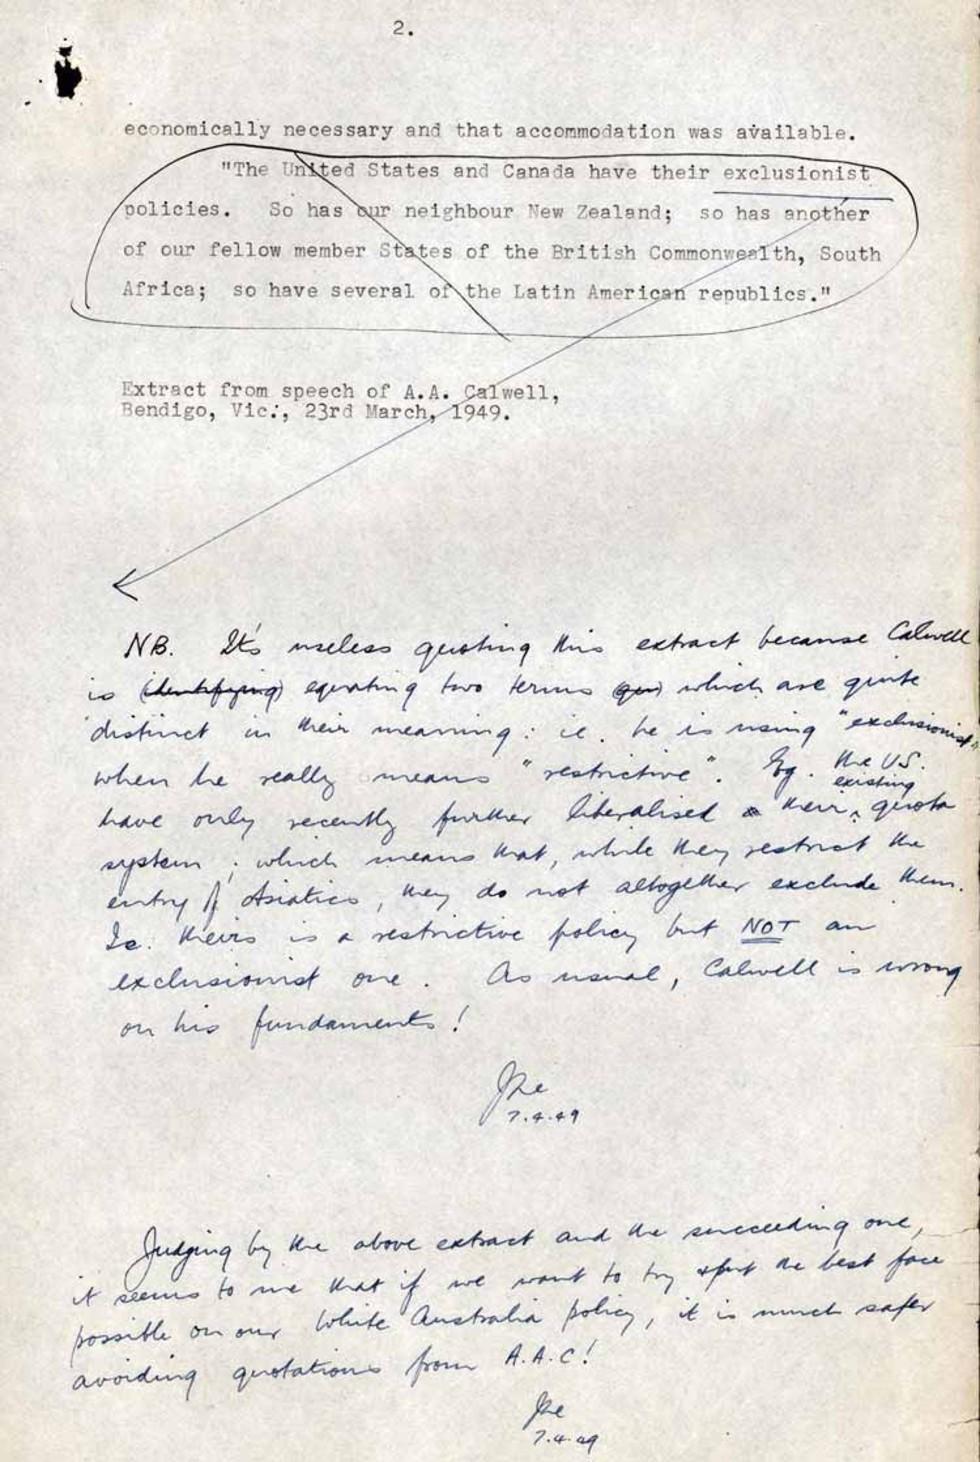 2.
economically necessary and that accommodation was available.
"The United States and Canada have their exclusionist
policies. So has our neighbour New Zealand; so has another
of our fellow member States of the British Commonwealth, South
Africa; so have several of the Latin American republics."
Extract from speech of A.A. Calwell,
Bendigo, Vic., 23rd March, 1949.
NB. It's useless quoting this extract because Calwell
is (identifying) equating two terms which are quite
distinct in their meaning: ie. he is using "exclusionist"
when he really means "restrictive". Eg. the US.
existing
have only recently further liberalised their quota
system; which means that, while they restrict the
entry of Asiatics, they do not altogether exclude them.
Ie. theirs is a restrictive policy but NOT an
exclusionist one. As usual, Calwell is wrong
on his fundaments!
7.4.49
Judging by the above extract and the succeeding one,
it seems to me that if we want to try & put the best face
possible on our White Australia policy, it is much safer
avoiding quotations from A.A.C!
7.4.49